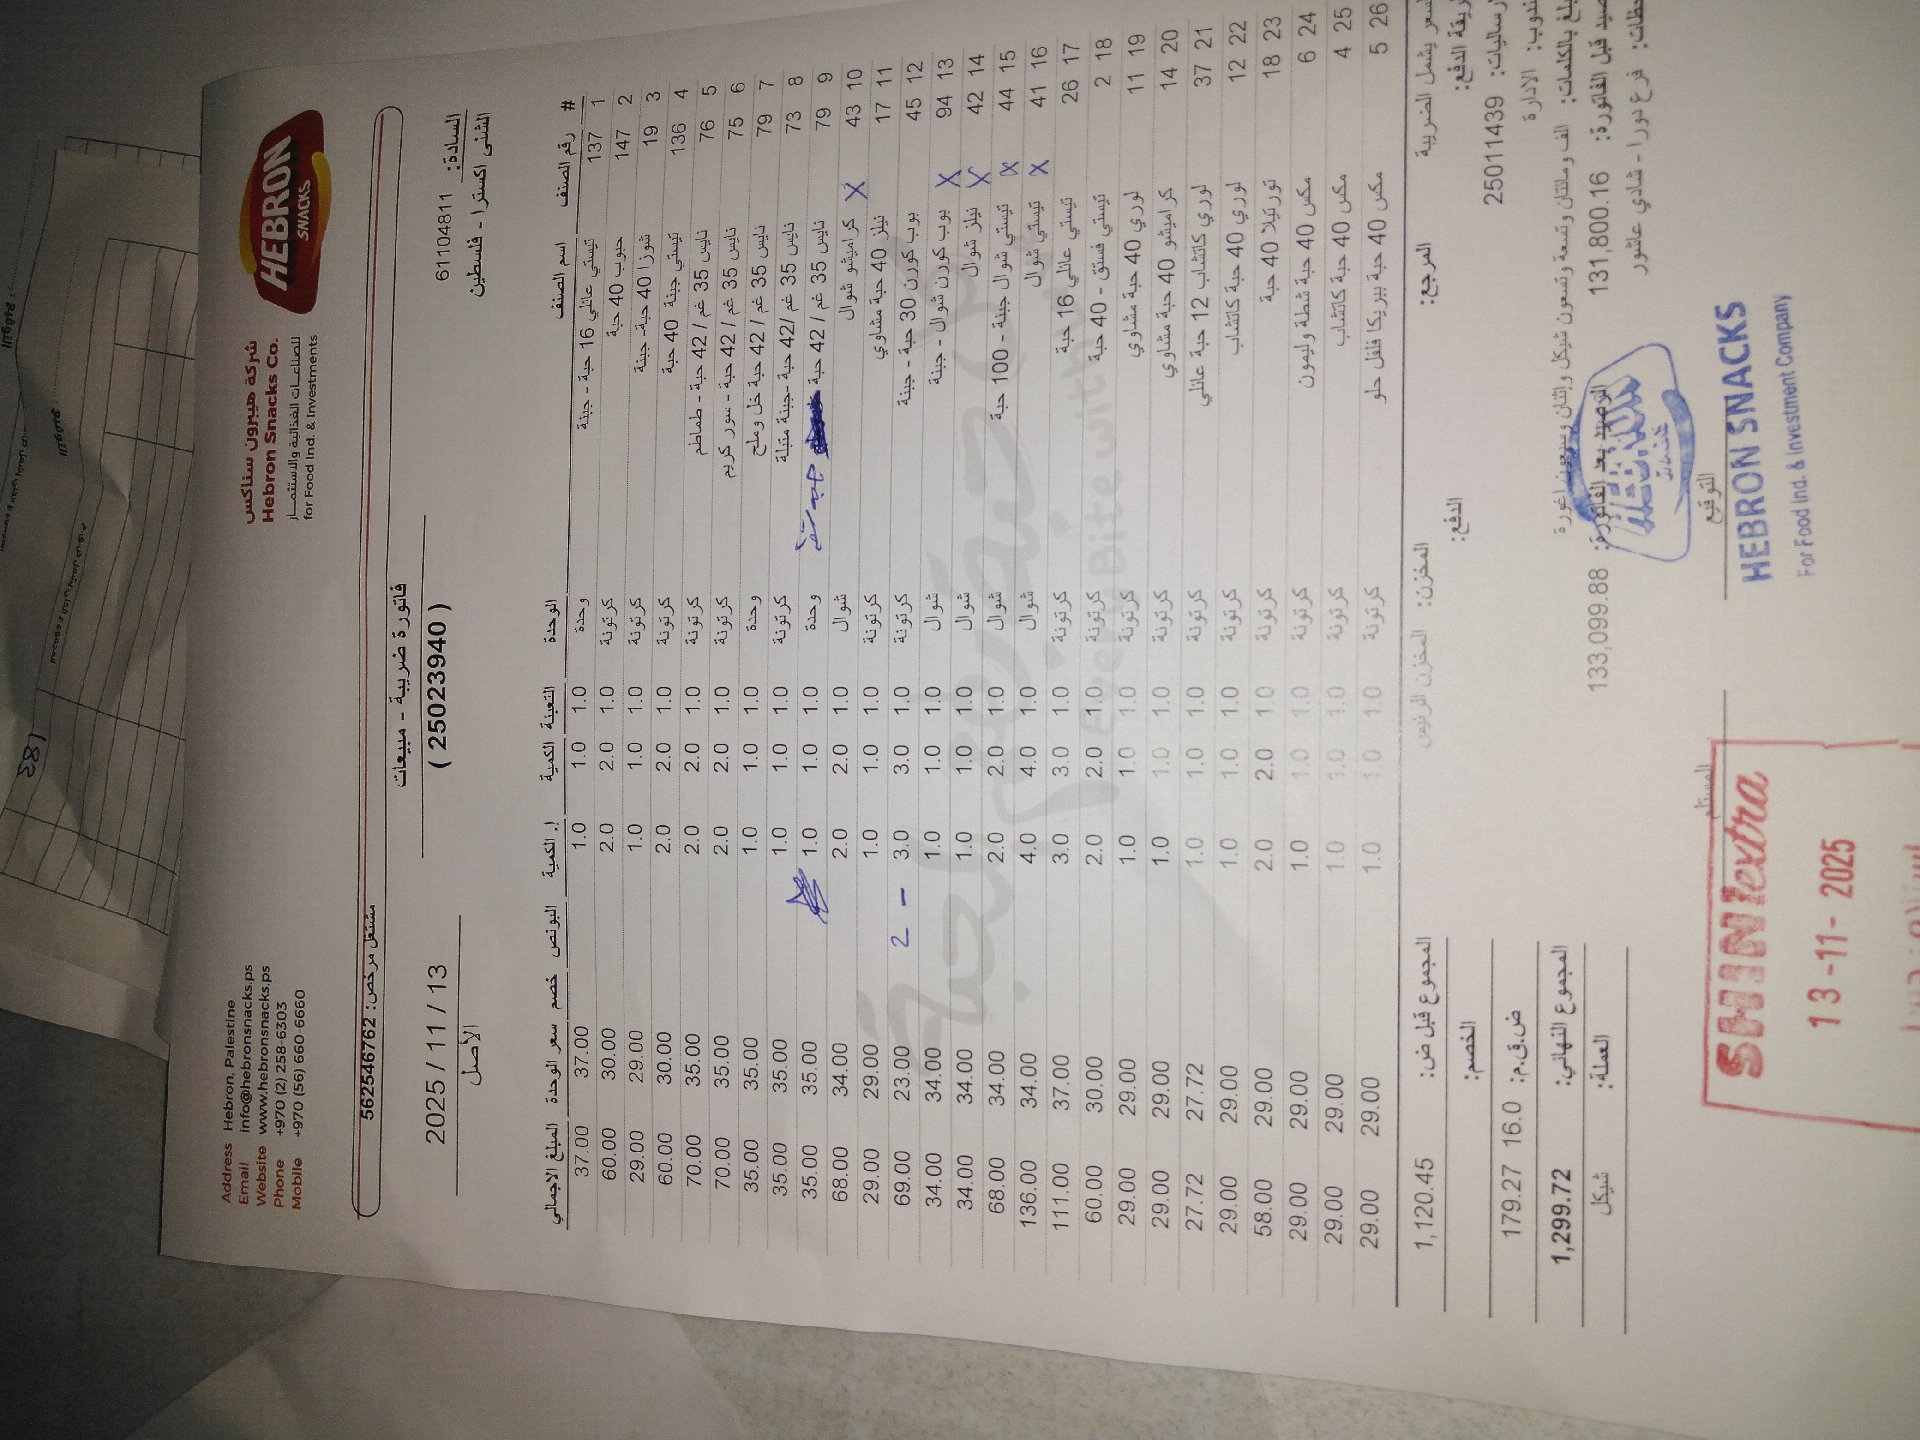 Address Hebron, Palestine
Email info@hebronsnacks.ps
Website www.hebronsnacks.ps
Phone +970 (2) 258-6303
Mobile +970 (56) 660-6660
شركة هيبرون سناكس
Hebron Snacks Co.
للصناعات الغذائية والاستثمار
for Food Ind. & Investments
HEBRON
SNACKS
مشتغل مرخص: 562546762
فاتورة ضريبية - مبيعات
( 25023940 )
2025 / 11 / 13
الأصل
السادة: 611104811
الشني اكسترا - فلسطين
# رقم الصنف اسم الصنف الوحدة التعبئة الكمية إ. الكمية البونص خصم سعر الوحدة المبلغ الاجمالي
1 137 تيستي عائلي 16 حبة - جبنة وحدة 1.0 1.0 1.0 37.00 37.00
2 147 حبوب 40 حبة كرتونة 1.0 2.0 2.0 30.00 60.00
3 19 شورزا 40 حبة- جبنة كرتونة 1.0 1.0 1.0 29.00 29.00
4 136 تيستي جبنة 40 حبة كرتونة 1.0 2.0 2.0 30.00 60.00
5 76 نايس 35 غم / 42 حبة - طماطم كرتونة 1.0 2.0 2.0 35.00 70.00
6 75 نايس 35 غم / 42 حبة - سور كريم كرتونة 1.0 2.0 2.0 35.00 70.00
7 79 نايس 35 غم / 42 حبة خل وملح وحدة 1.0 1.0 1.0 35.00 35.00
8 73 نايس 35 غم /42 حبة -جبنة متبلة كرتونة 1.0 1.0 1.0 35.00 35.00
9 79 نايس 35 غم / 42 حبة وحدة 1.0 1.0 1.0 35.00 35.00
10 43 كراميشو شوال X شوال 1.0 2.0 2.0 34.00 68.00
11 17 نيلز 40 حبة مشاوي كرتونة 1.0 1.0 1.0 29.00 29.00
12 45 بوب كورن 30 حبة - جبنة كرتونة 1.0 3.0 3.0 2 - 23.00 69.00
13 94 بوب كورن شوال - جبنة X شوال 1.0 1.0 1.0 34.00 34.00
14 42 نيلز شوال X شوال 1.0 1.0 1.0 34.00 34.00
15 44 تيستي شوال جبنة - 100 حبة X شوال 1.0 2.0 2.0 34.00 68.00
16 41 تيستي شوال X شوال 1.0 4.0 4.0 34.00 136.00
17 26 تيستي عائلي 16 حبة كرتونة 1.0 3.0 3.0 37.00 111.00
18 2 تيستي فستق - 40 حبة كرتونة 1.0 2.0 2.0 30.00 60.00
19 11 لوري 40 حبة مشاوي كرتونة 1.0 1.0 1.0 29.00 29.00
20 14 كراميشو 40 حبة مشاوي كرتونة 1.0 1.0 1.0 29.00 29.00
21 37 لوري كاتشاب 12 حبة عائلي كرتونة 1.0 1.0 1.0 27.72 27.72
22 12 لوري 40 حبة كاتشاب كرتونة 1.0 1.0 1.0 29.00 29.00
23 18 تورتيلا 40 حبة كرتونة 1.0 2.0 2.0 29.00 58.00
24 6 مكس 40 حبة شطة وليمون كرتونة 1.0 1.0 1.0 29.00 29.00
25 4 مكس 40 حبة كاتشاب كرتونة 1.0 1.0 1.0 29.00 29.00
26 5 مكس 40 حبة بيريكا فلفل حلو كرتونة 1.0 1.0 1.0 29.00 29.00
سعر يشمل الضريبة المرجع: المخزن: المخزن الرئيس المجموع قبل ض: 1,120.45
الدفع: الخصم:
ريقة الدفع:
رساليات: 25011439 ض.ق.م: 16.0 179.27
ندوب: الادارة
بلغ بالكلمات: الف ومائتان وتسعة وتسعون شيكل واثنان وسبعون اغورة المجموع النهائي: 1,299.72
صيد قبل الفاتورة: 131,800.16 الرصيد بعد الفاتورة: 133,099.88 العملة: شيكل
حظات: فرع دورا - شادي عاشور
التوقيع المستلم
HEBRON SNACKS
For Food Ind. & Investment Company
SHINIextra
13-11- 2025